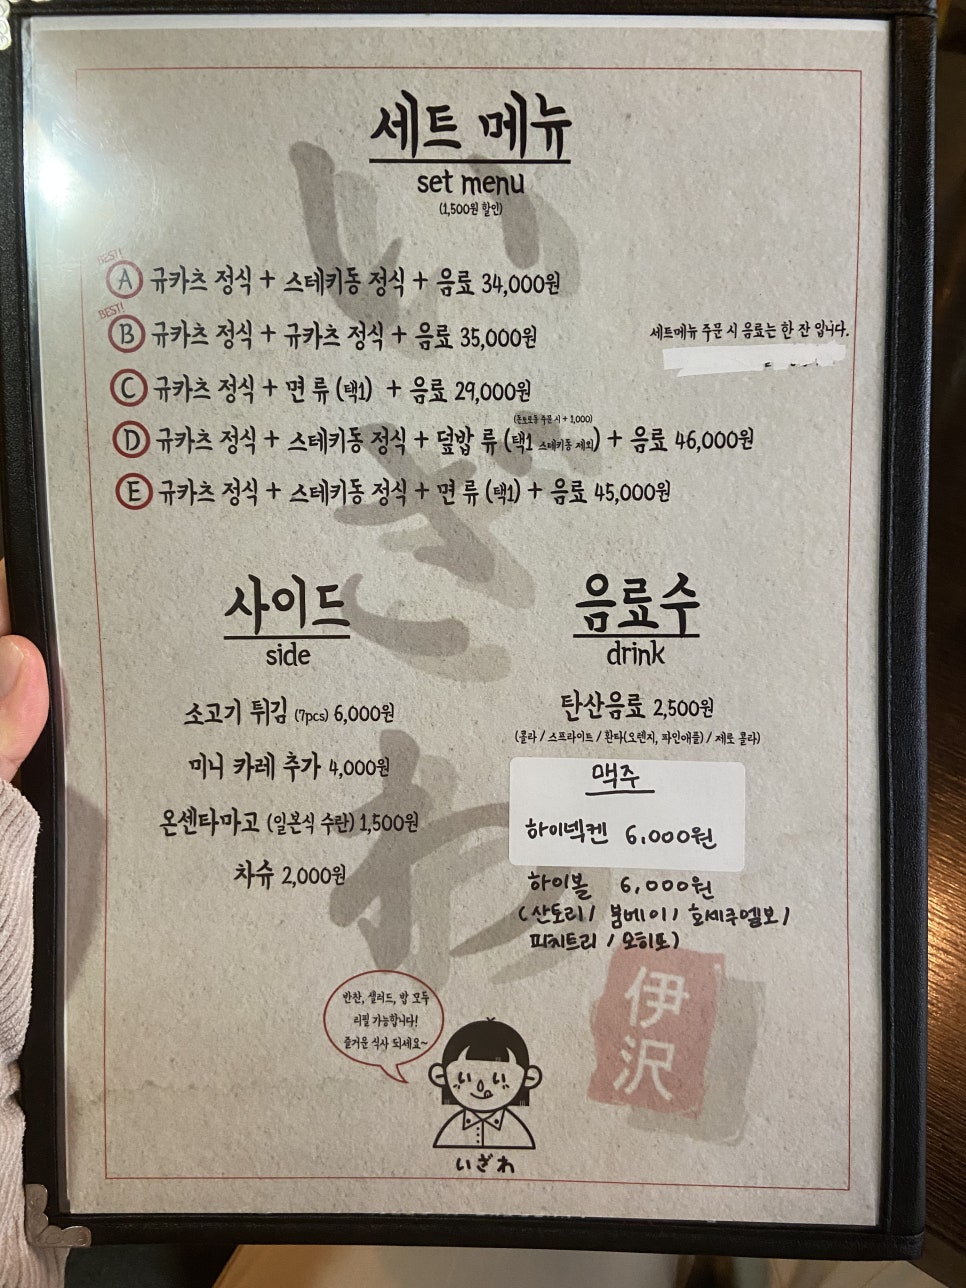 세트 메뉴
set menu
(1,500원 할인)
BEST!
A 규카츠 정식 + 스테키동 정식 + 음료 34,000원
BEST!
B 규카츠 정식 + 규카츠 정식 + 음료 35,000원
세트메뉴 주문 시 음료는 한 잔 입니다.
C 규카츠 정식 + 면 류 (택1) + 음료 29,000원
D 규카츠 정식 + 스테키동 정식 + 덮밥 류 (택1 스테키동 제외) + 음료 46,000원
주문 시 + 1,000)
E 규카츠 정식 + 스테키동 정식 + 면 류 (택1) + 음료 45,000원
사이드
side
소고기 튀김 (7pcs) 6,000원
미니 카레 추가 4,000원
온센타마고 (일본식 수란) 1,500원
차슈 2,000원
음료수
drink
탄산음료 2,500원
(콜라 / 스프라이트 / 환타(오렌지, 파인애플) / 제로 콜라)
맥주
하이넥켄 6,000원
하이볼 6,000원
(산토리 / 봄베이 / 호세쿠엘보 /
피치트리 / 모히또)
반찬, 샐러드, 밥 모두
리필 가능합니다!
즐거운 식사 되세요~
いざわ
伊沢
いざわ